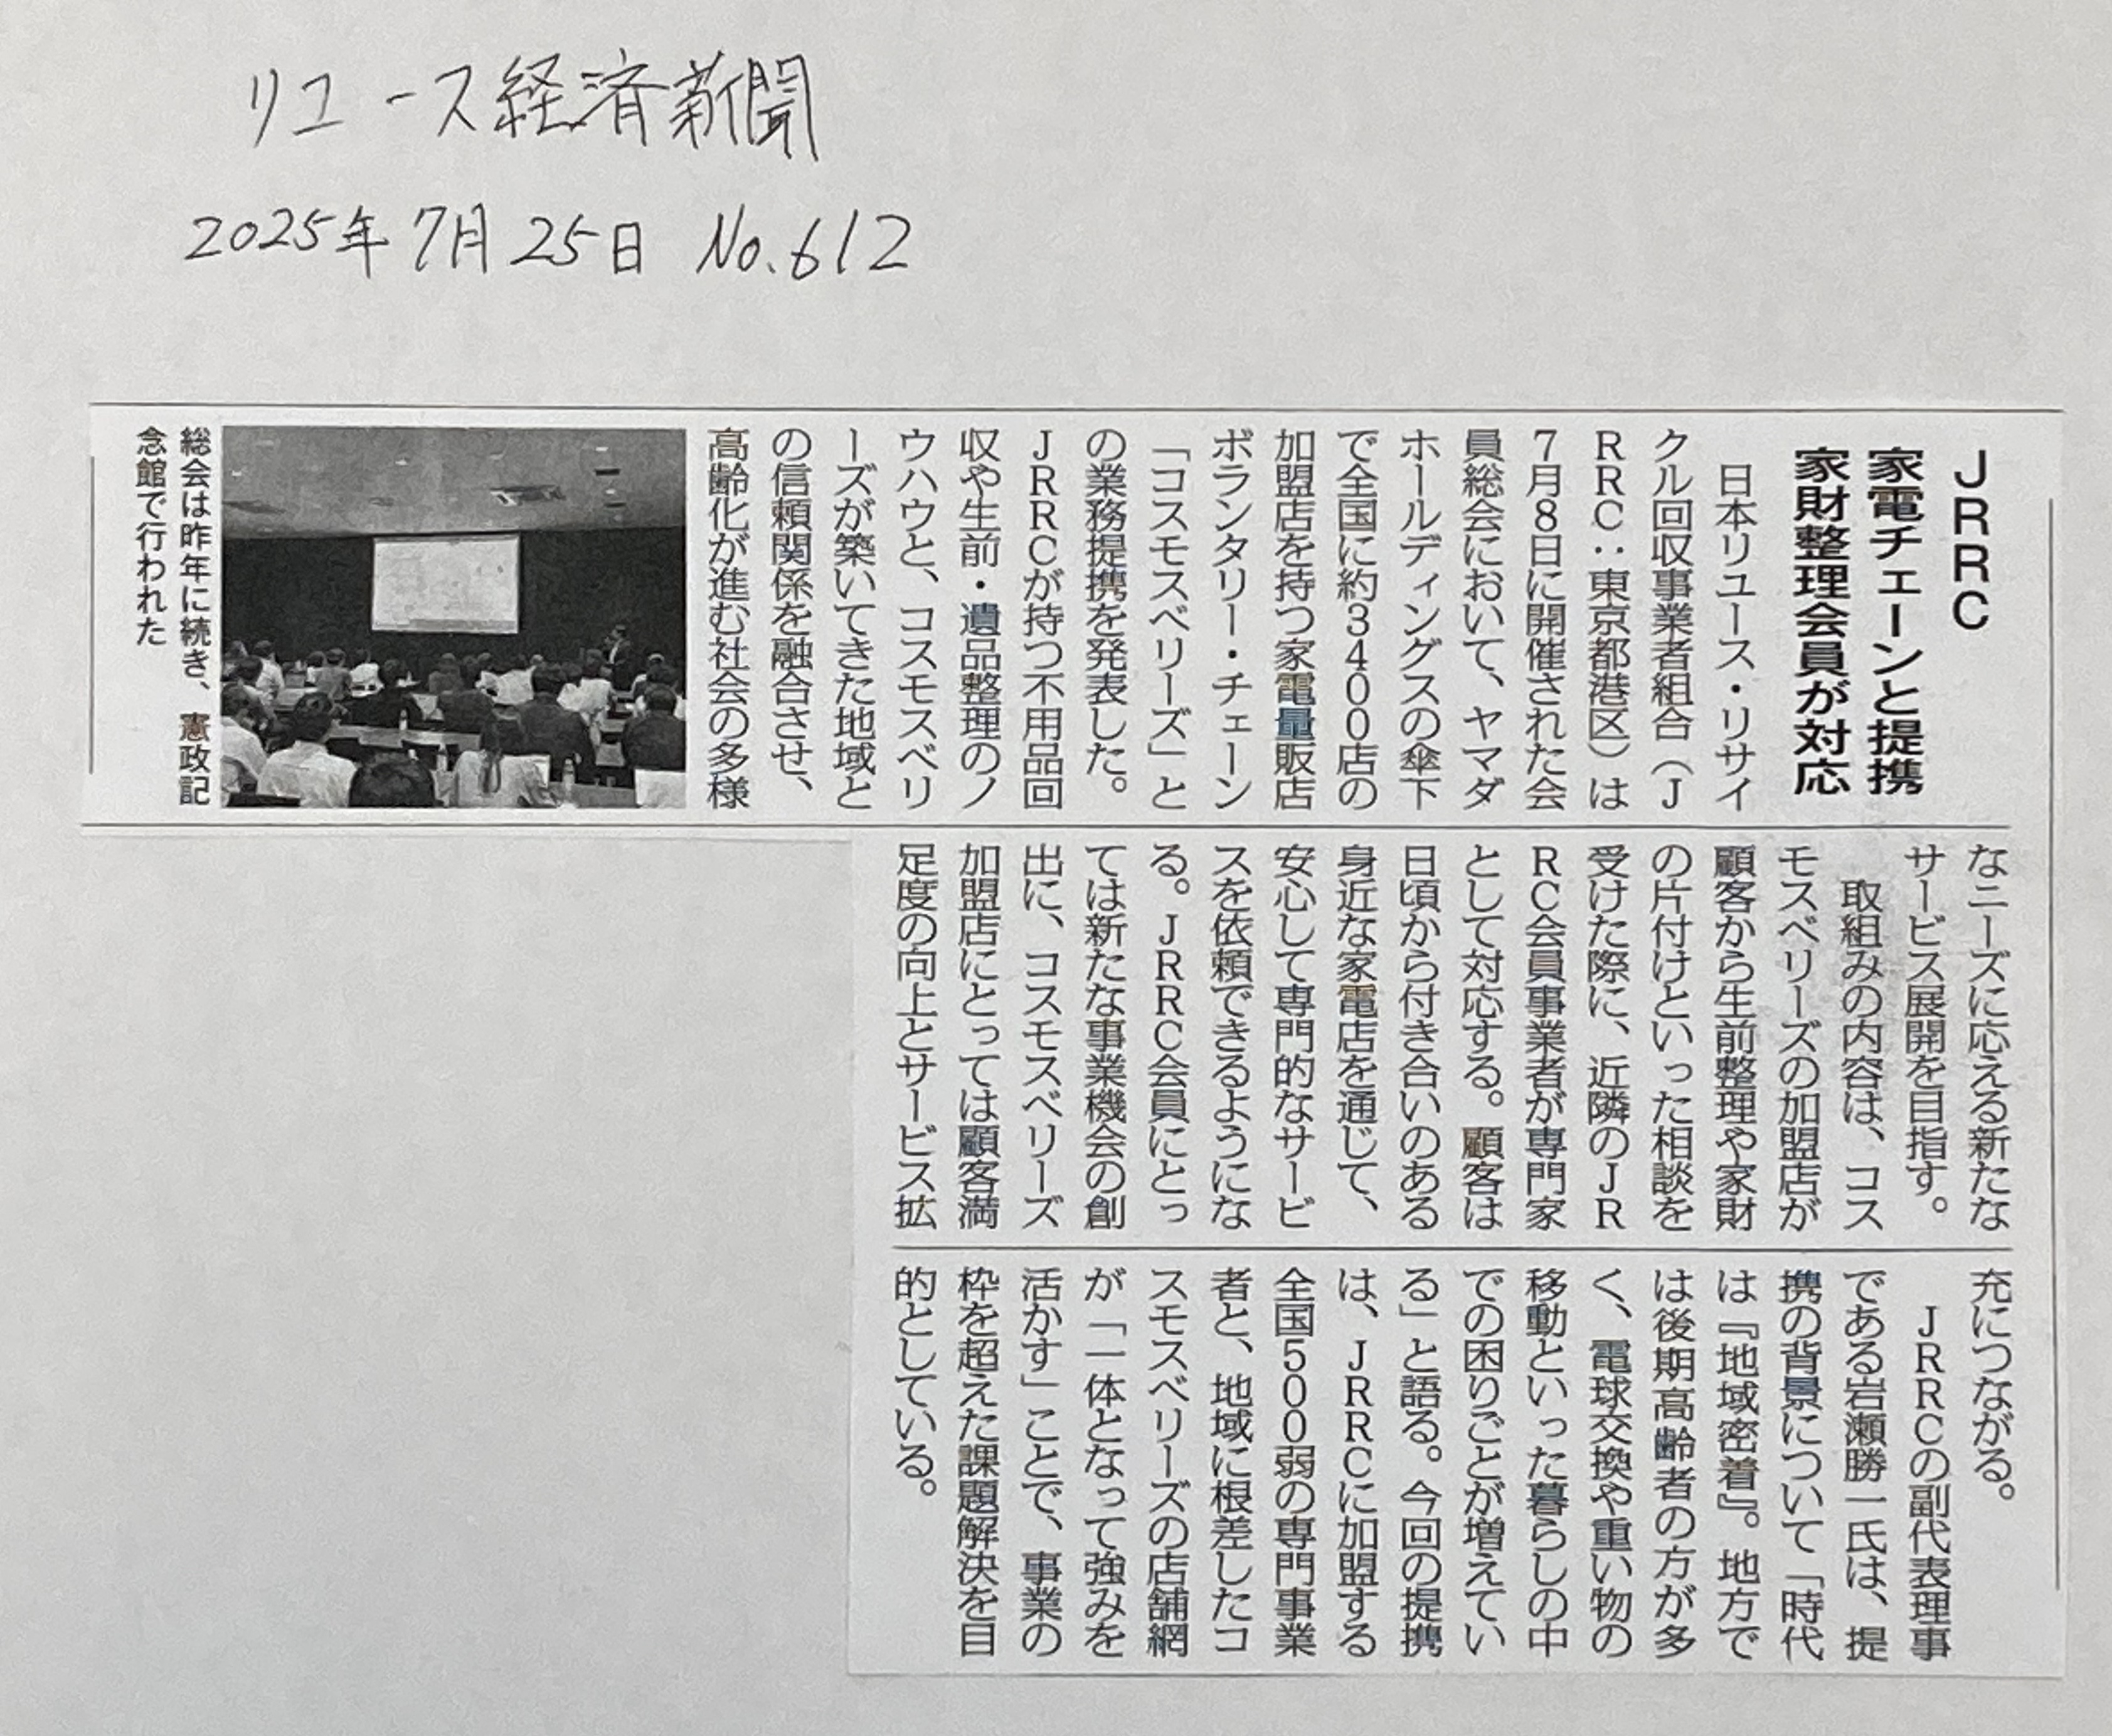 リユース経済新聞
2025年7月25日 No.612
JRRC
家電チェーンと提携
家財整理会員が対応
日本リユース・リサイ
クル回収事業者組合（J
RRC：東京都港区）は
7月8日に開催された会
員総会において、ヤマダ
ホールディングスの傘下
で全国に約3400店の
加盟店を持つ家電量販店
ボランタリー・チェーン
「コスモスベリーズ」と
の業務提携を発表した。
JRRCが持つ不用品回
収や生前・遺品整理のノ
ウハウと、コスモスベリ
ーズが築いてきた地域と
の信頼関係を融合させ、
高齢化が進む社会の多様
総会は昨年に続き、憲政記
念館で行われた
なニーズに応える新たな
サービス展開を目指す。
取組みの内容は、コス
モスベリーズの加盟店が
顧客から生前整理や家財
の片付けといった相談を
受けた際に、近隣のJR
RC会員事業者が専門家
として対応する。顧客は
日頃から付き合いのある
身近な家電店を通じて、
安心して専門的なサービ
スを依頼できるようにな
る。JRRC会員にとっ
ては新たな事業機会の創
出に、コスモスベリーズ
加盟店にとっては顧客満
足度の向上とサービス拡
充につながる。
JRRCの副代表理事
である岩瀬勝一氏は、提
携の背景について「時代
は『地域密着』。地方で
は後期高齢者の方が多
く、電球交換や重い物の
移動といった暮らしの中
での困りごとが増えてい
る」と語る。今回の提携
は、JRRCに加盟する
全国500弱の専門事業
者と、地域に根差したコ
スモスベリーズの店舗網
が「一体となって強みを
活かす」ことで、事業の
枠を超えた課題解決を目
的としている。